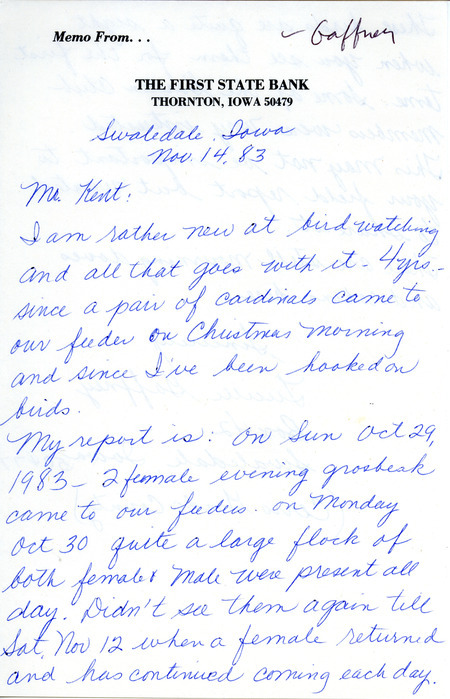 Memo From. . .
✓ Gaffney
THE FIRST STATE BANK
THORNTON, IOWA 50479
Swaledale, Iowa
Nov. 14, 83
Mr. Kent:
I am rather new at bird watching
and all that goes with it - 4 yrs. -
since a pair of cardinals came to
our feeder on Christmas morning
and since I've been hooked on
birds.
My report is: On Sun Oct 29,
1983 - 2 female evening grosbeak
came to our feeders. on Monday
Oct 30 quite a large flock of
both female & male were present all
day. Didn't see them again till
Sat, Nov 12 when a female returned
and has continued coming each day.